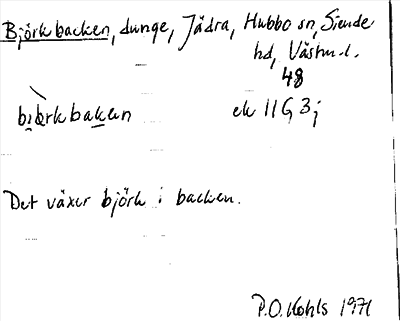 Björkbacken, dunge, Jädra, Hubbo sn, Siende
hd, Västm.l.
48
ek 11G 3j
Det växer björk i backen.
P.O. Kohls 1971